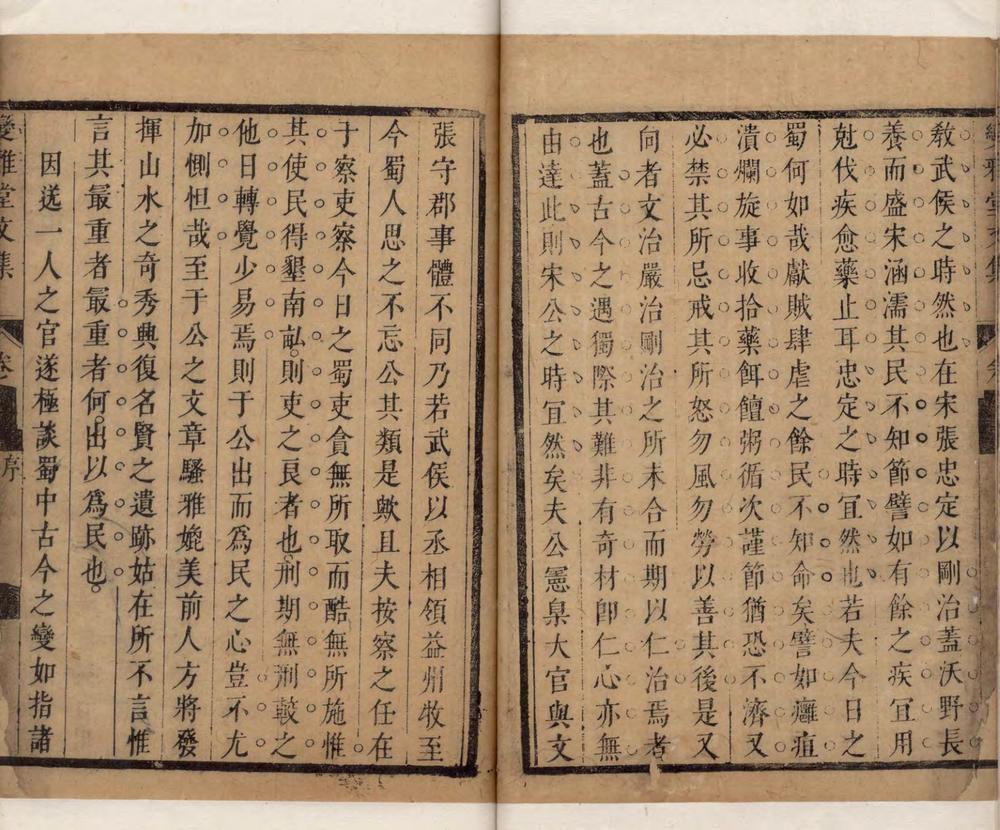 教武侯之時然也在宋張忠定以剛治蓋沃野長
養而盛宋涵濡其民不知節譬如有餘之疾宜用
尅伐疾愈藥止耳忠定之時宜然也若夫今日之
蜀何如哉獻賊肆虐之餘民不知命矣譬如癰疽
潰爛旋事收拾藥餌饘粥循次謹節猶恐不濟又
必禁其所忌戒其所怒勿風勿勞以善其後是又
向者文治嚴治剛治之所未合而期以仁治焉者
也蓋古今之遇獨際其難非有奇材卽仁心亦無
由達此則宋公之時宜然矣夫公憲臬大官與文
張守郡事體不同乃若武侯以丞相領益州牧至
今蜀人思之不忘公其類是歟且夫按察之任在
于察吏察今日之蜀吏貪無所取而酷無所施惟
其使民得墾南畝則吏之良者也刑期無刑較之
他日轉覺少易焉則于公出而爲民之心豈不尤
加惻怛哉至于公之文章騷雅媲美前人方將發
揮山水之奇秀興復名賢之遺跡姑在所不言惟
言其最重者最重者何出以爲民也
因送一人之官遂極談蜀中古今之變如指諸
變雅堂文集 卷 序